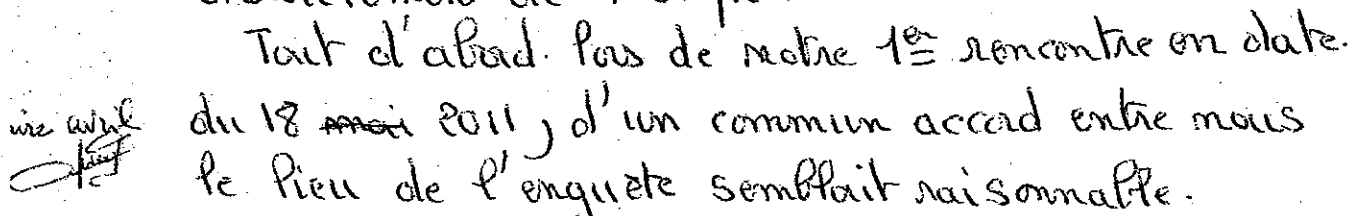 Tout d'abord. lors de notre 1er rencontre en date.
du 18 mai 2011, d'un commun accord entre nous
lire avril
le lieu de l'enquète semblait raisonnable.